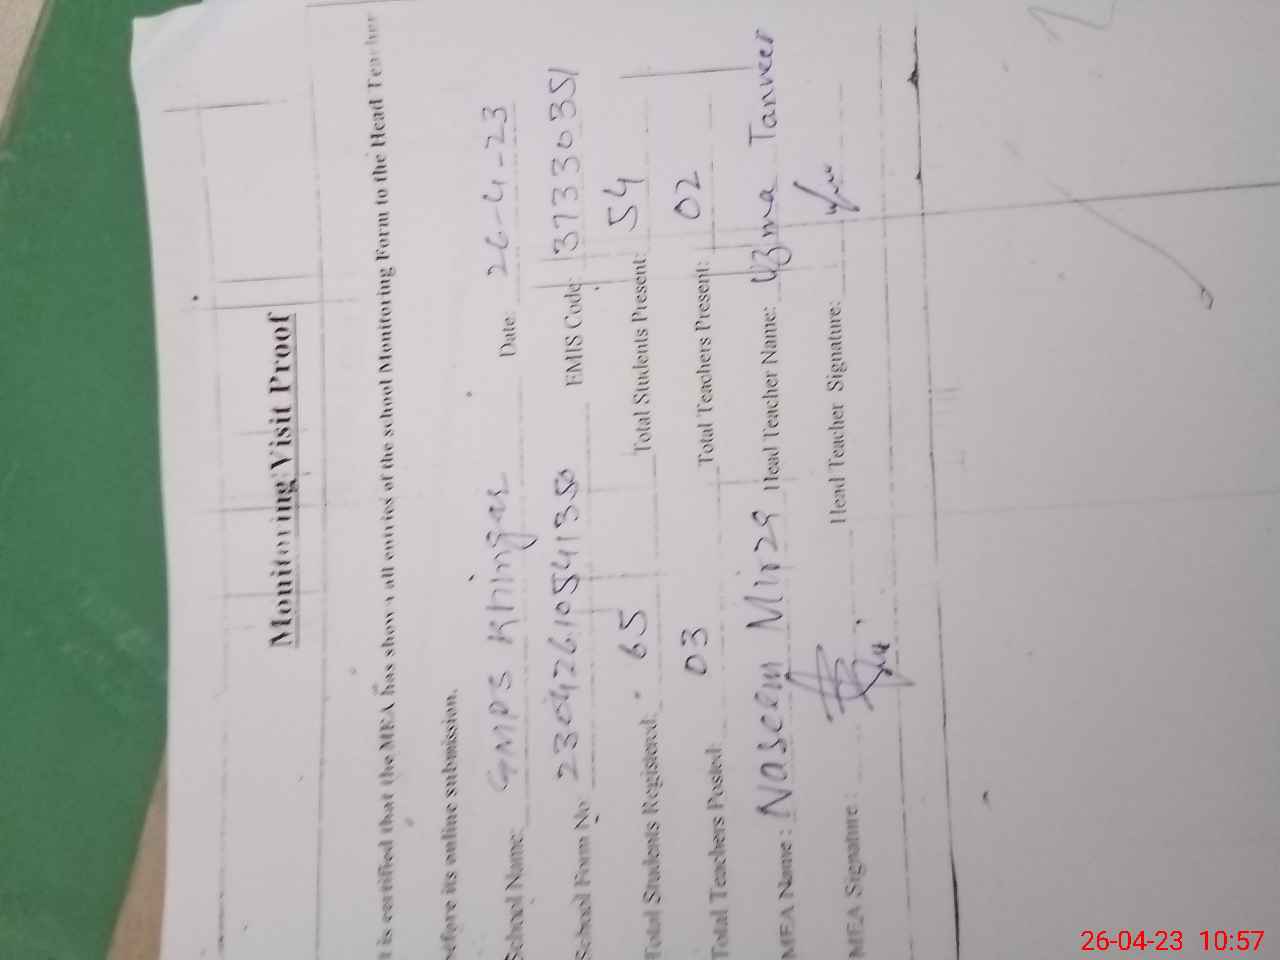 Monitoring Visit Proof
It is certified that the MEA has shown all entries of the school Monitoring Form to the Head Teacher
before its online submission.
School Name: GMPS Khingar Date: 26-4-23
School Form No: 23042610541350 EMIS Code: 37330351
Total Students Registered: 65 Total Students Present: 54
Total Teachers Posted: 03 Total Teachers Present: 02
MEA Name: Naseem Mirza Head Teacher Name: Uzma Tanveer
MEA Signature: Head Teacher Signature:
26-04-23 10:57